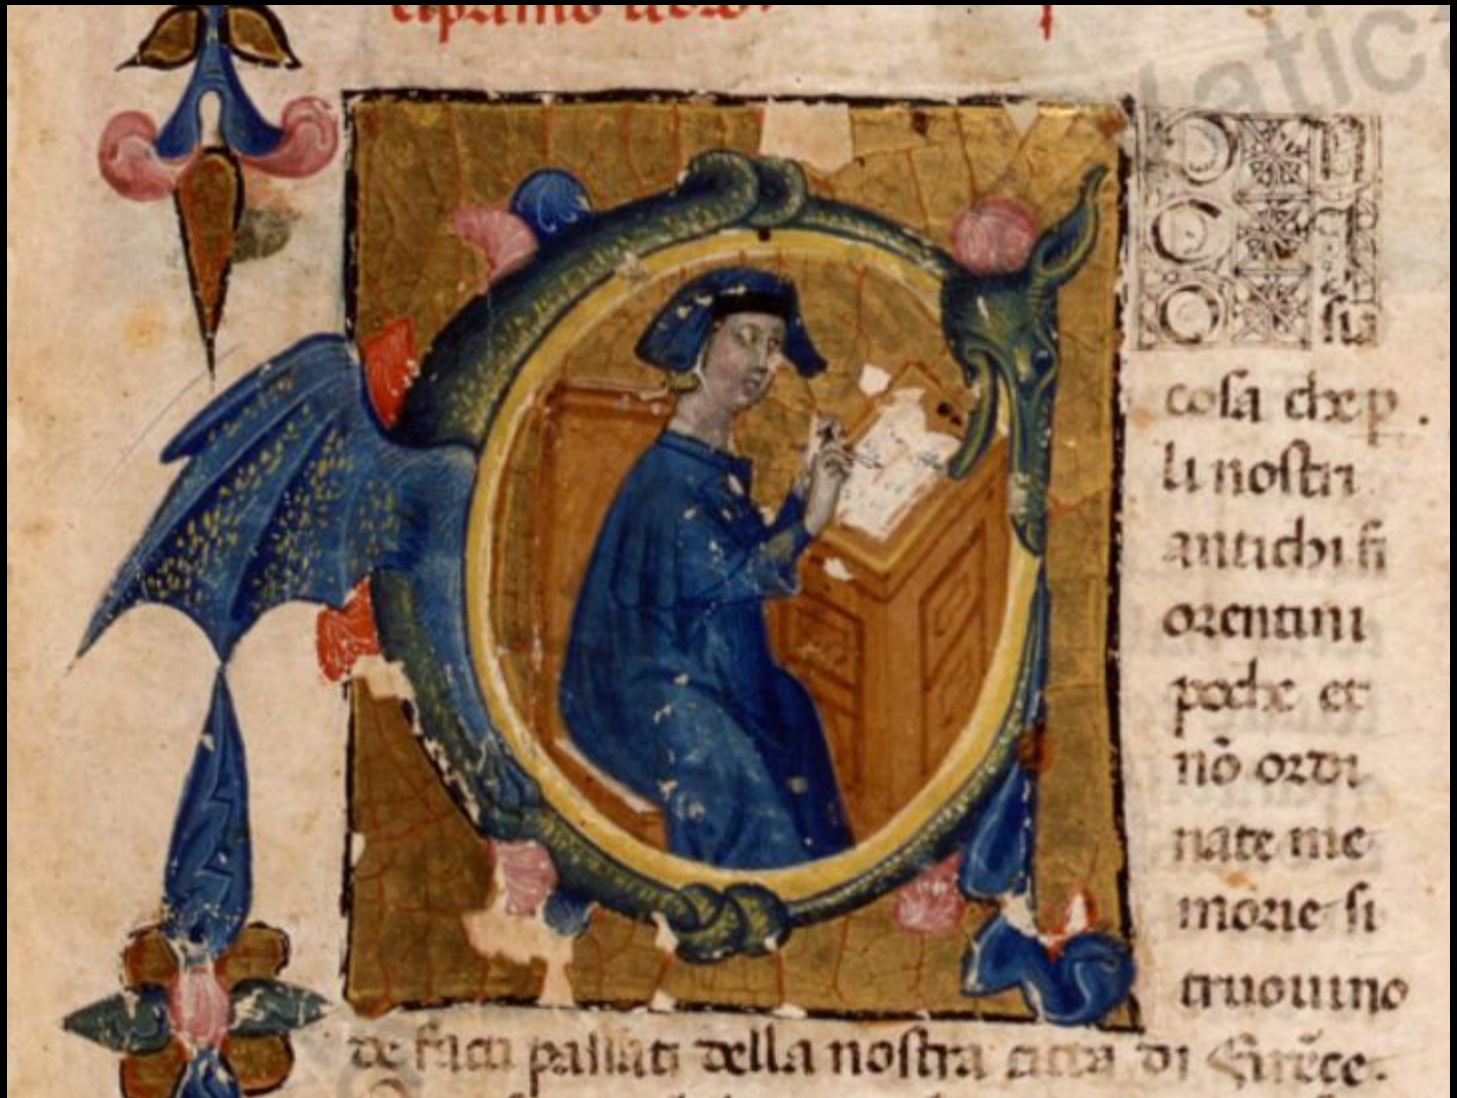 cipitulo
sia
cosa che p
li nostri
antichi fi
orentini
poche et
nõ ordi
nate me
morie si
truouino
de facti passati della nostra citta di Firẽce.